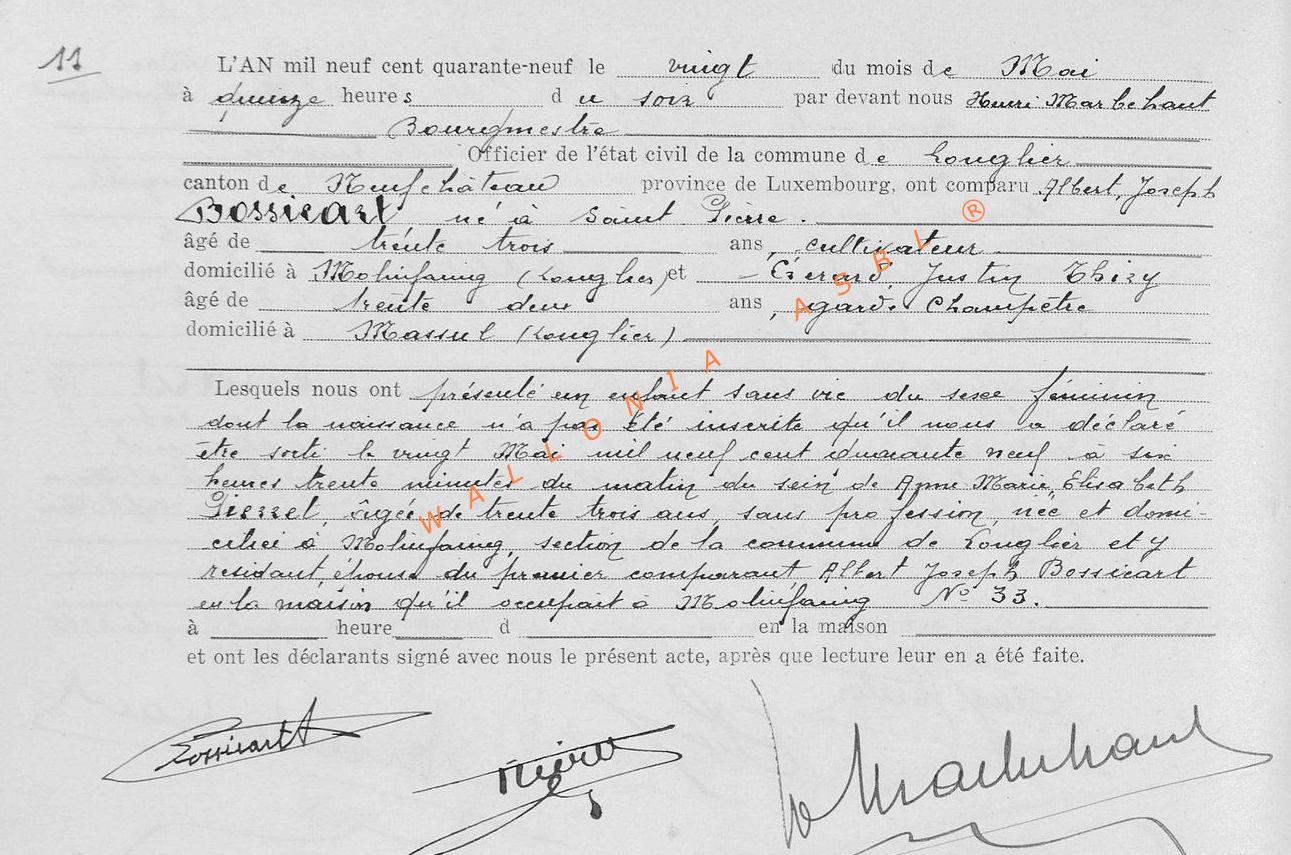 11
L'AN mil neuf cent quarante-neuf le vingt du mois de Mai
à quinze heures du soir par devant nous Henri Marbehant
Bourgmestre
Officier de l'état civil de la commune de Longlier
canton de Neufchâteau province de Luxembourg, ont comparu Albert, Joseph
Bossicart né à Saint Pierre.
âgé de trente trois ans, cultivateur
domicilié à Molinfaing (Longlier) et Gérard, Justin Thiry
âgé de trente deux ans, garde Champêtre
domicilié à Massul (Longlier)
Lesquels nous ont présenté un enfant sans vie du sexe féminin
dont la naissance n'a pas été inscrite qu'il nous a déclaré
être sorti le vingt Mai mil neuf cent quarante neuf à six
heures trente minutes du matin du sein de Anne Marie, Elisabeth
Pierret, âgée de trente trois ans, sans profession, née et domi-
ciliée à Molinfaing, section de la commune de Longlier et y
résidant, épouse du premier comparant Albert Joseph Bossicart
en la maison qu'il occupait à Molinfaing N° 33.
à heure d en la maison
et ont les déclarants signé avec nous le présent acte, après que lecture leur en a été faite.
Bossicart A
Marbehant
WALLONIA ASBL ®